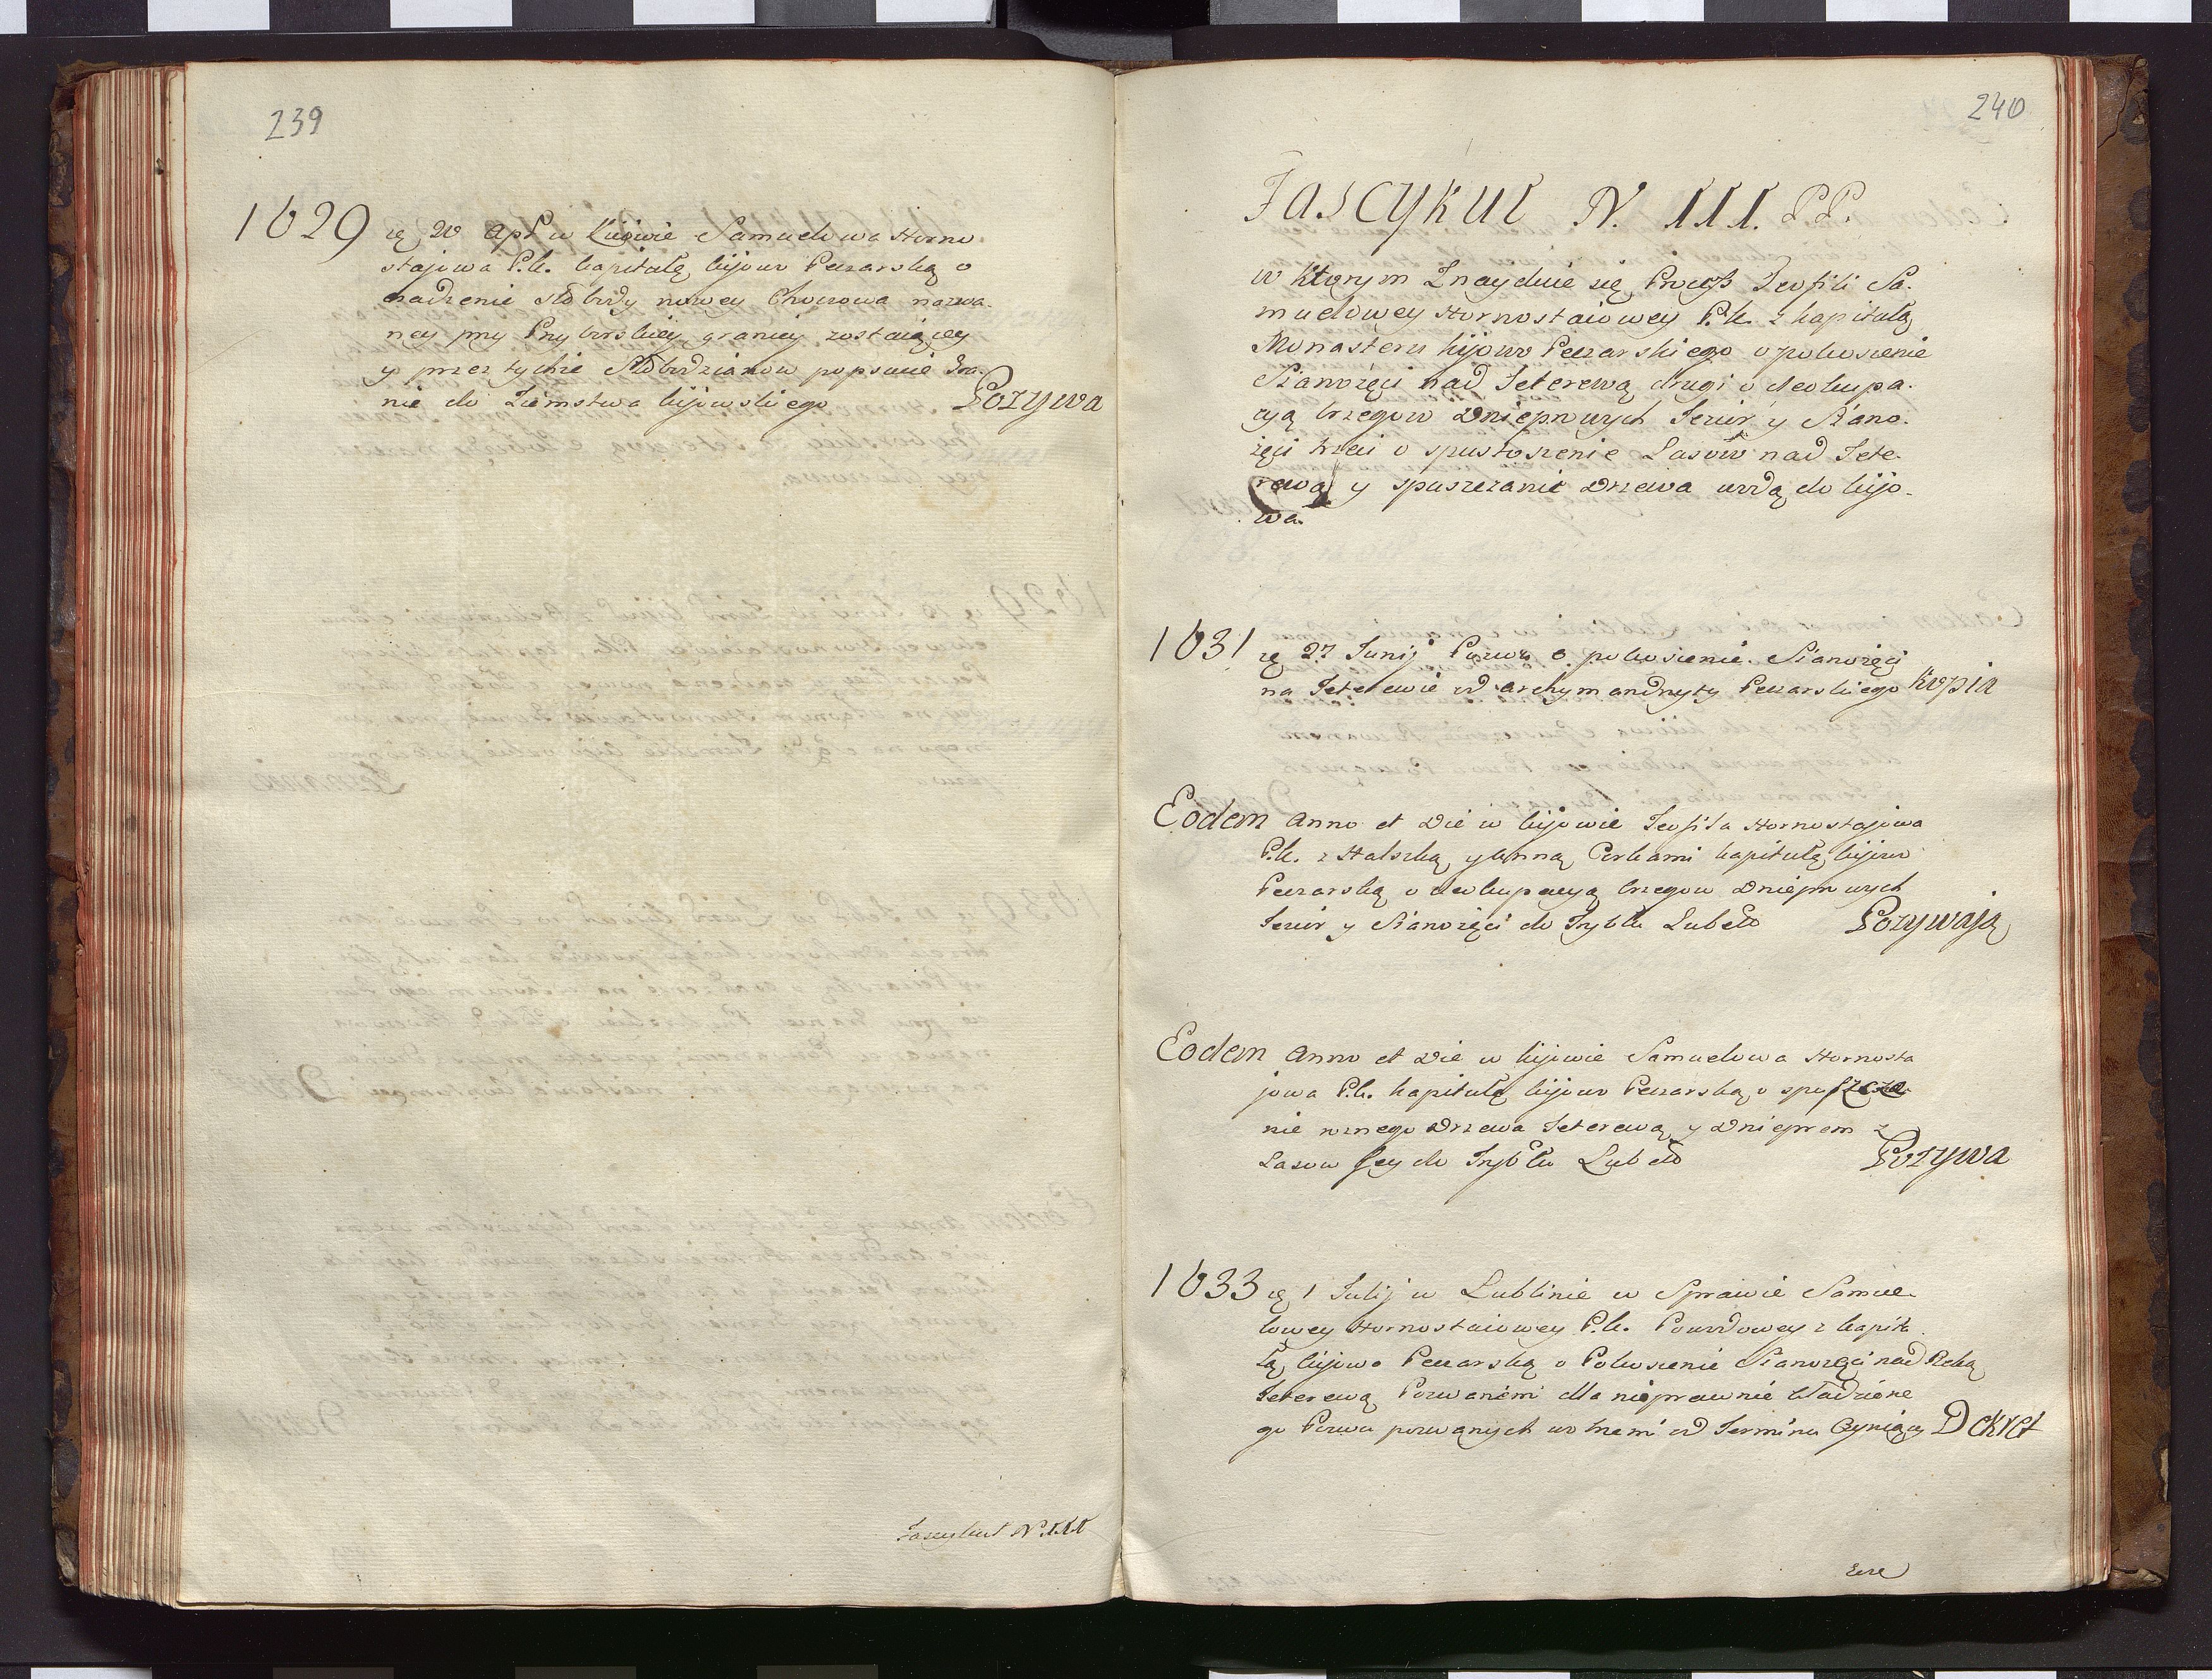 239
1629 rę 20 Apl w Kijowie Samuelowa Horno
stajowa P.k. kapitułę kijowo Peczarską o
osadzenie słobody nowey Chocsowa nazwa-
ney przy Przyborskiey granicy zostaiącey
y przez tychże Słobodzianow popsucie Gra-
nic do Ziemstwa kijowskiego Pozywa
Fascykuł N. III
240
Fascykuł N. III. PP.
w ktorym Znayduie się Process Teofili Sa-
muelowey Hornostaiowey P.k. z kapitułą
Monasteru kijowo Peczarskiego o pokoszenie
Sianożęci nad Teterewą drugi o deokupa-
cyą brzegow Dnieprowych Jezior y Siano-
żęci trzeci o spustoszenie Lasow nad Tete-
rewą y spuszczanie Drzewa wodą do kijo-
wa.
1631 rę 27 Junij Pozwu o pokoszenie Sianożęci
na Teterewie od archymandryty Peczarskiego Kopia
Eodem Anno et Die w kijowie Teofila Hornostajowa
P.k. z Halszką y Anną Corkami kapitułę kijowo
Peczarską o deokupacyą brzegow Dnieprowych
Jezior y Sianożęci do Trybłu Lubelo Pozywają
Eodem Anno et Die w kijowie Samuelowa Hornosta
jowa P.k. kapitułę kijowo Peczarską o spuszcza-
nie roznego Drzewa Teterewą y Dnieprem z
Lasow Jey do Trybłu Lubelo Pozywa
1633 rę 1 Julij w Lublinie w Sprawie Samue-
lowey Hornostaiowey P.k. Powodowey z kapitu
łą kijowo Peczarską o Pokoszenie Sianozęci nad Rzeką
Teterewą Pozwanemi dla nieprawnie kładzione
go Pozwu pozwanych wolnemi od Terminu Czyniący Dekret